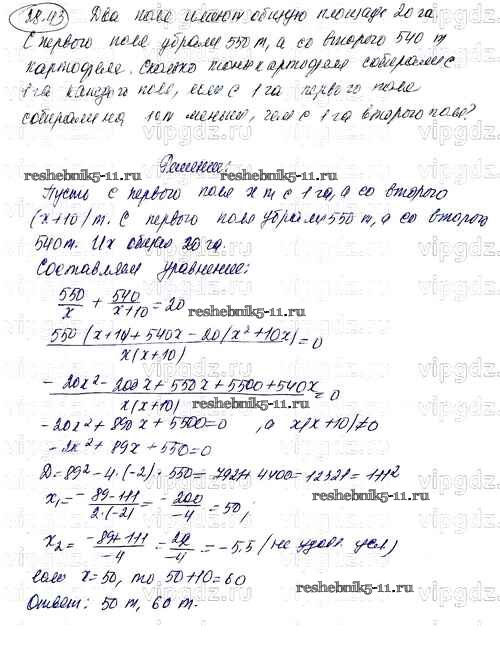 28.43 Два поля имеют общую площадь 20 га.
С первого поля убрали 550 т, а со второго 540 т
картофеля. Сколько тонн картофеля собирали с
1 га каждого поля, если с 1 га первого поля
собирали на 10 т меньше, чем с 1 га второго поля?
Решение:
reshebnik5-11.ru reshebnik5-11.ru
Пусть с первого поля x т с 1 га, а со второго
(x+10) т. С первого поля убрали 550 т, а со второго
540 т. Их общая 20 га.
Составляем уравнение:
550/x + 540/(x+10) = 20
reshebnik5-11.ru
(550(x+10)+540x-20(x²+10x))/(x(x+10)) = 0
(-20x²-200x+550x+5500+540x)/(x(x+10)) = 0
-20x²+890x+5500=0, а x(x+10)≠0
-2x²+89x+550=0
D=89²-4·(-2)·550=7921+4400=12321=111²
reshebnik5-11.ru
x₁ = (-89-111)/(2·(-2)) = -200/-4 = 50;
x₂ = (-89+111)/-4 = 22/-4 = -5,5 (не удовл. усл)
если x=50, то 50+10=60
reshebnik5-11.ru
Ответ: 50 т, 60 т.
vipgdz.ru